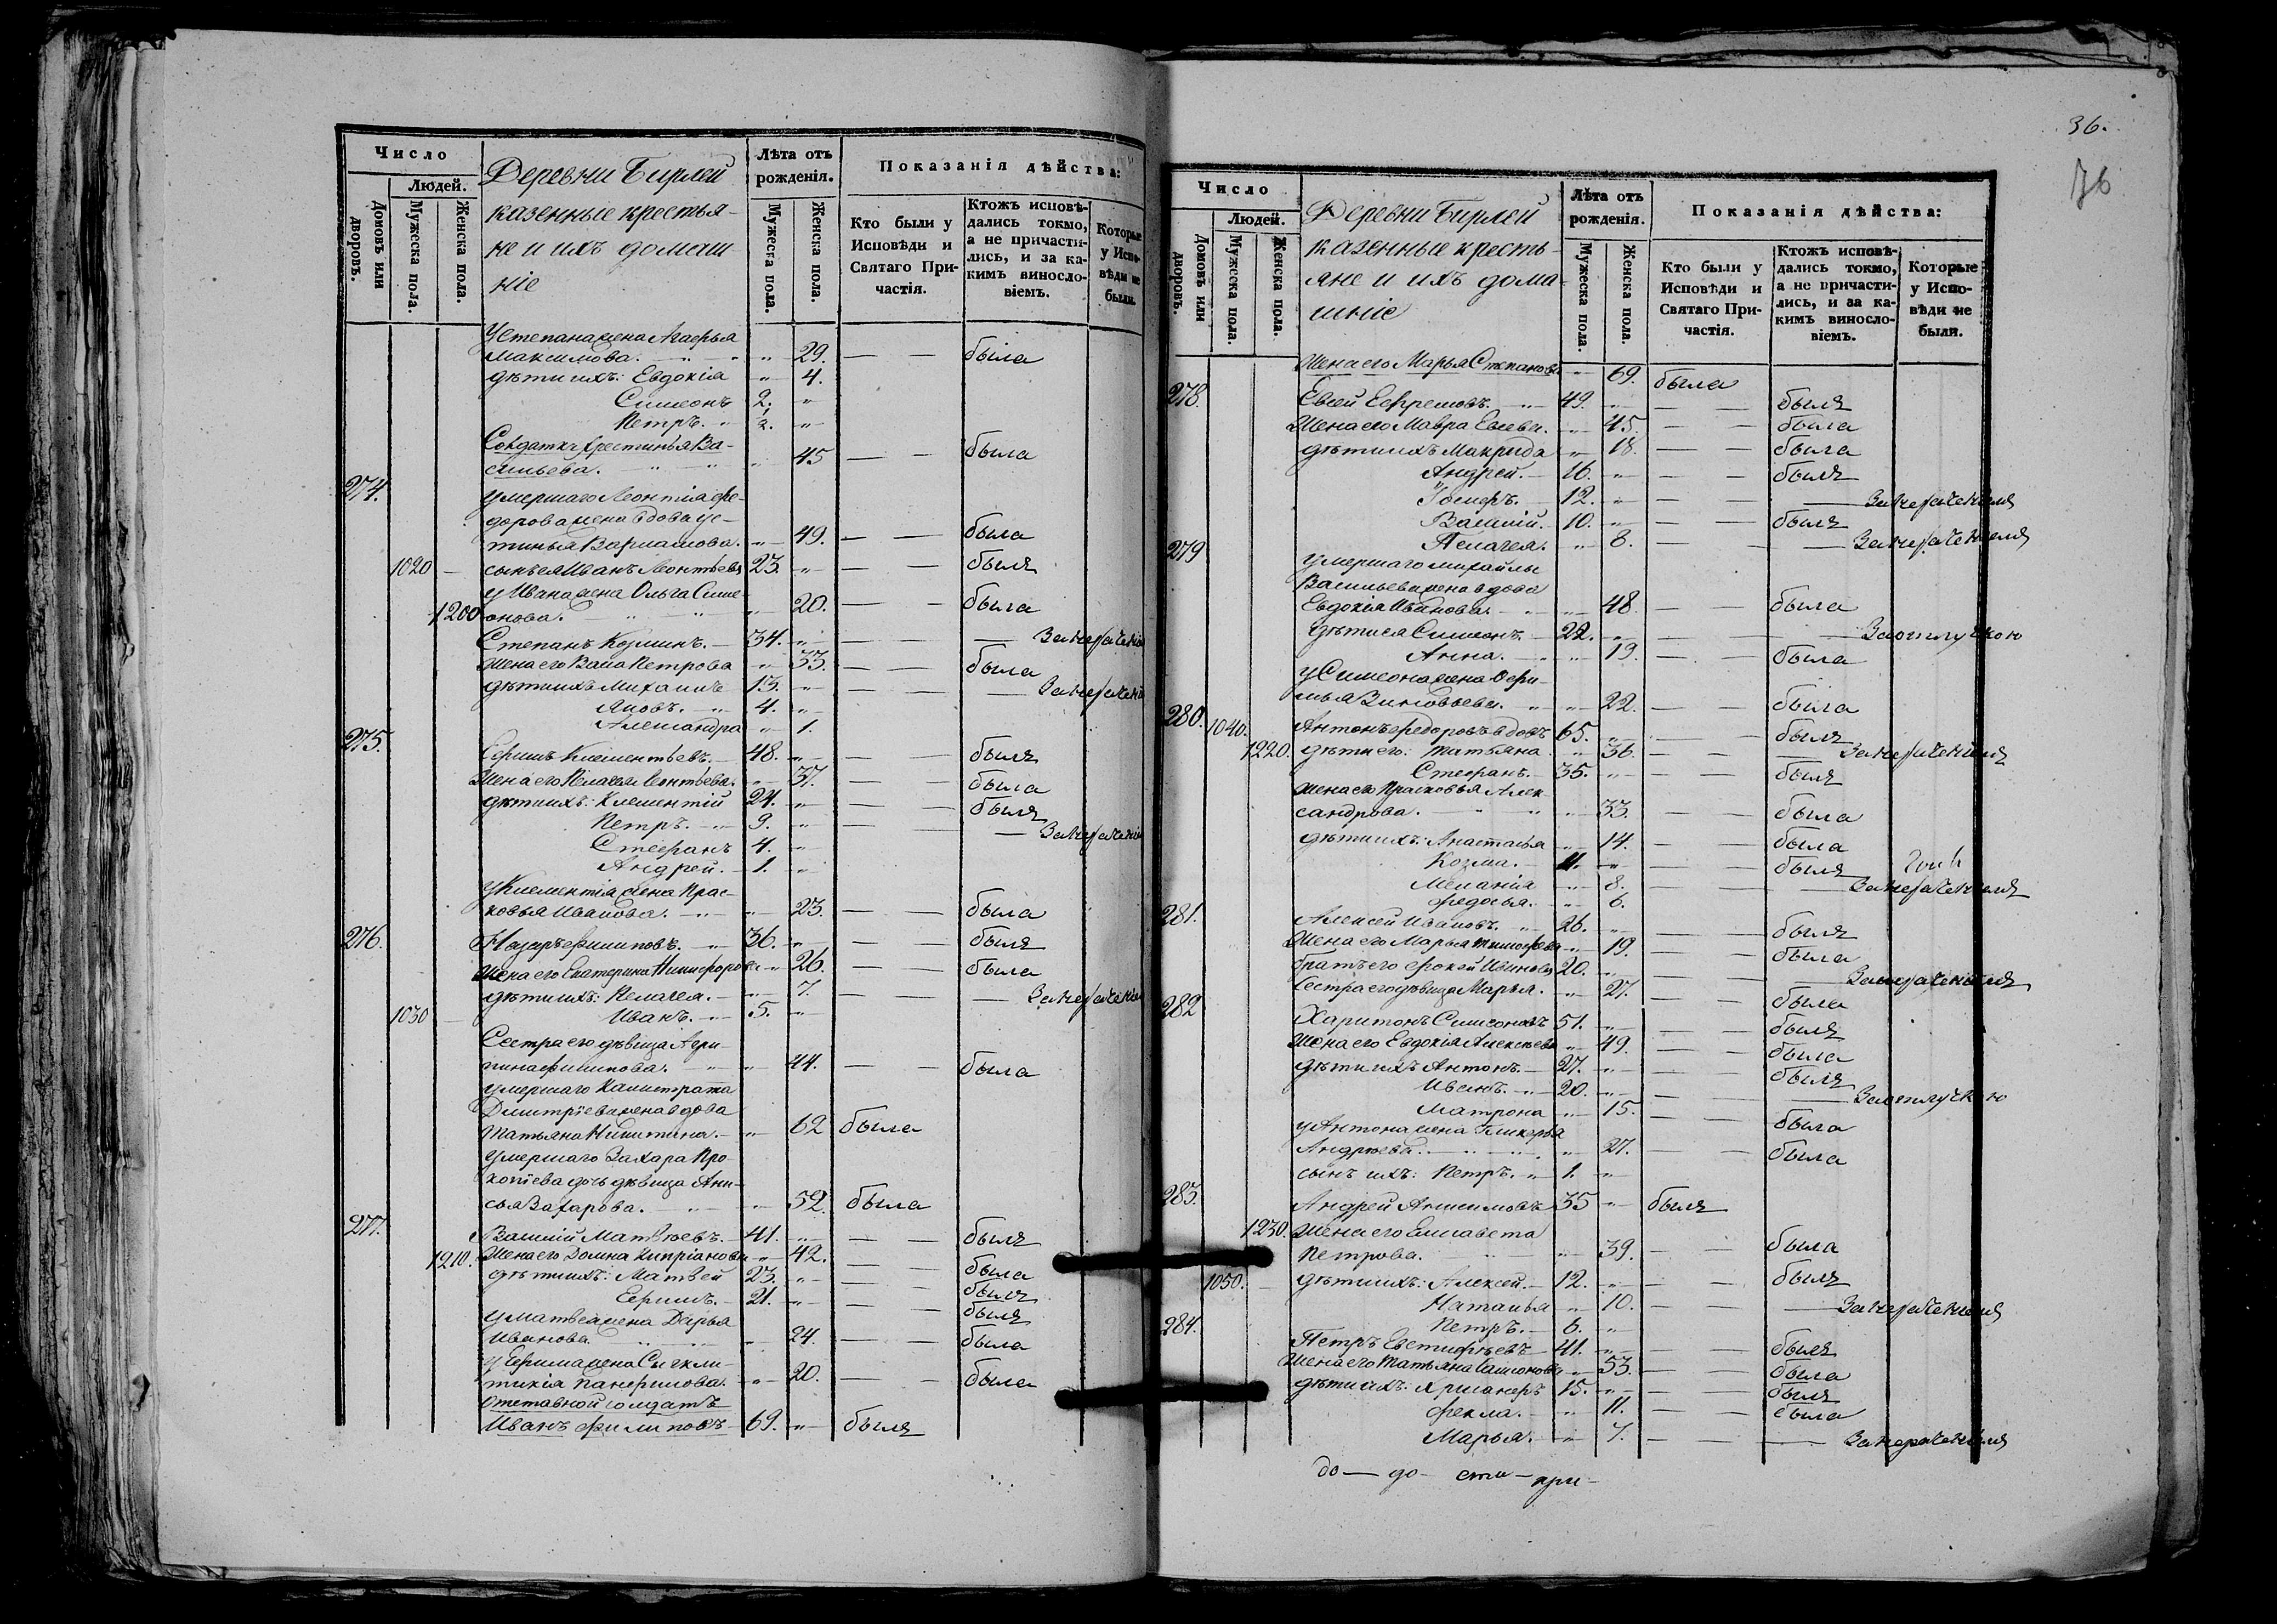 Число
Людей.
Домовъ или дворовъ.
Мужеска пола.
Женска пола.
Деревни Бирлей
казенные крестья-
не и ихъ домаш-
ніе
Лѣта отъ рожденія.
Мужеска пола.
Женска пола.
Показанія дѣйства:
Кто были у Исповѣди и Святаго Причастія.
Ктожъ исповѣ-дались токмо, а не причасти-лись, и за ка-кимъ винносло-віемъ.
Которые у Испо-вѣди не были.
У Степана жена Агафья
Максимова. 29. была
дѣти ихъ: Евдокія 4.
Симеонъ 2.
Петръ. 2.
Солдатка Христинья Ва-
сильева. 45 была
274. умершаго Леонтія Фе-
дорова жена вдова Ус-
тинья Варламова. 49. была
1020 сынъ ея Иванъ Леонтьевъ 23. былъ
у Ивана жена Ольга Симе-
1200 онова. 20. была
Степанъ Козминъ. 34. За нераченіем
Жена его Васса Петрова 33. была
дѣти ихъ Михаилъ 13. За нераченіем
Яковъ. 4.
Александра 1.
275. Ефимъ Клементьевъ. 48. былъ
Жена его Пелагея Леонтьева. 37. была
дѣти ихъ: Клементій 24. былъ
Петръ. 9. За нераченіем
Стефанъ 4.
Андрей. 1.
У Клементія жена Прас-
ковья Иванова. 23. была
276. Назаръ Филиповъ. 36. былъ
Жена его Екатерина Никифорова 26. была
дѣти ихъ: Пелагея. 7. За нераченіем
1030 Иванъ. 5.
Сестра его дѣвица Агри-
пина Филипова. 44. была
умершаго Калистрата
Димитріева жена вдова
Татьяна Никитина. 62 была
Умершаго Захара Про-
копіева дочь дѣвица Ани-
сья Захарова. 52. была
277. Василій Матвѣевъ. 41. былъ
1210. Жена его Домна Кипріанова 42. была
дѣти ихъ: Матвей 23. былъ
Ефимъ. 21. былъ
У Матвея жена Дарья
Иванова 24. была
У Ефима жена Синкли-
тикія Панфилова. 20. была
Отставной солдатъ
Иванъ Филиповъ 69. былъ
36.
36
Число
Людей.
Домовъ или дворовъ.
Мужеска пола.
Женска пола.
Деревни Бирлей
казенные кресть-
яне и ихъ дома-
шніе
Лѣта отъ рожденія.
Мужеска пола.
Женска пола.
Показанія дѣйства:
Кто были у Исповѣди и Святаго Причастія.
Ктожъ исповѣ-дались токмо, а не причасти-лись, и за ка-кимъ винносло-віемъ.
Которые у Испо-вѣди не были.
Жена его Марья Степанова 69. была
278. Евсей Ефремовъ. 49. былъ
Жена его Мавра Евсева. 45. была
дѣти ихъ Макрида 18. была
Андрей. 16. былъ
Іосифъ. 12. За нераченіемъ
Василій. 10. былъ
Пелагея. 8. За нераченіемъ
279 Умершаго Михайлы
Васильева жена вдова
Евдокія Иванова. 48. была
дѣти ея Симеонъ. 22. За отлучкою
Анна. 19. была
У Симеона жена Офи-
мья Зиновьева. 22. была
280. 1040. Антонъ Федоровъ вдовъ 65. былъ
1220. дѣти его: Татьяна 36. За нераченіемъ
Стефанъ. 35. былъ
Жена его Прасковья Алек-
сандрова. 33. была
дѣти ихъ: Анастасья 14. была
Козма. 11. былъ
Меланія 8. За нераченіемъ
Федосья. 6.
281. Алексей Ивановъ. 26. былъ
Жена его Марья Тимофева 19. была
братъ его Фокей Ивановъ 20. За нераченіемъ
Сестра его дѣвица Марья. 27. была
282 Харитонъ Симеоновъ 51. былъ
Жена его Евдокія Алексѣева 49. была
дѣти ихъ Антонъ. 27. былъ
Иванъ. 20. За отлучкою
Матрона 15. была
У Антона жена Гликерья
Андреева. 27. была
сынъ ихъ: Петръ. 1.
283. Андрей Анисимовъ 35 былъ
1230. Жена его Елисавета
Петрова. 39. была
1050. дѣти ихъ: Алексей. 12. былъ
Наталья 10. За нераченіемъ
Петръ. 6.
284. Петръ Евстифѣевъ 41. былъ
Жена его Татьяна Самонова 53. была
дѣти ихъ: 15. былъ
Фекла. 11. была
Марья. 7. За нераченіемъ
до — го — сти — при —